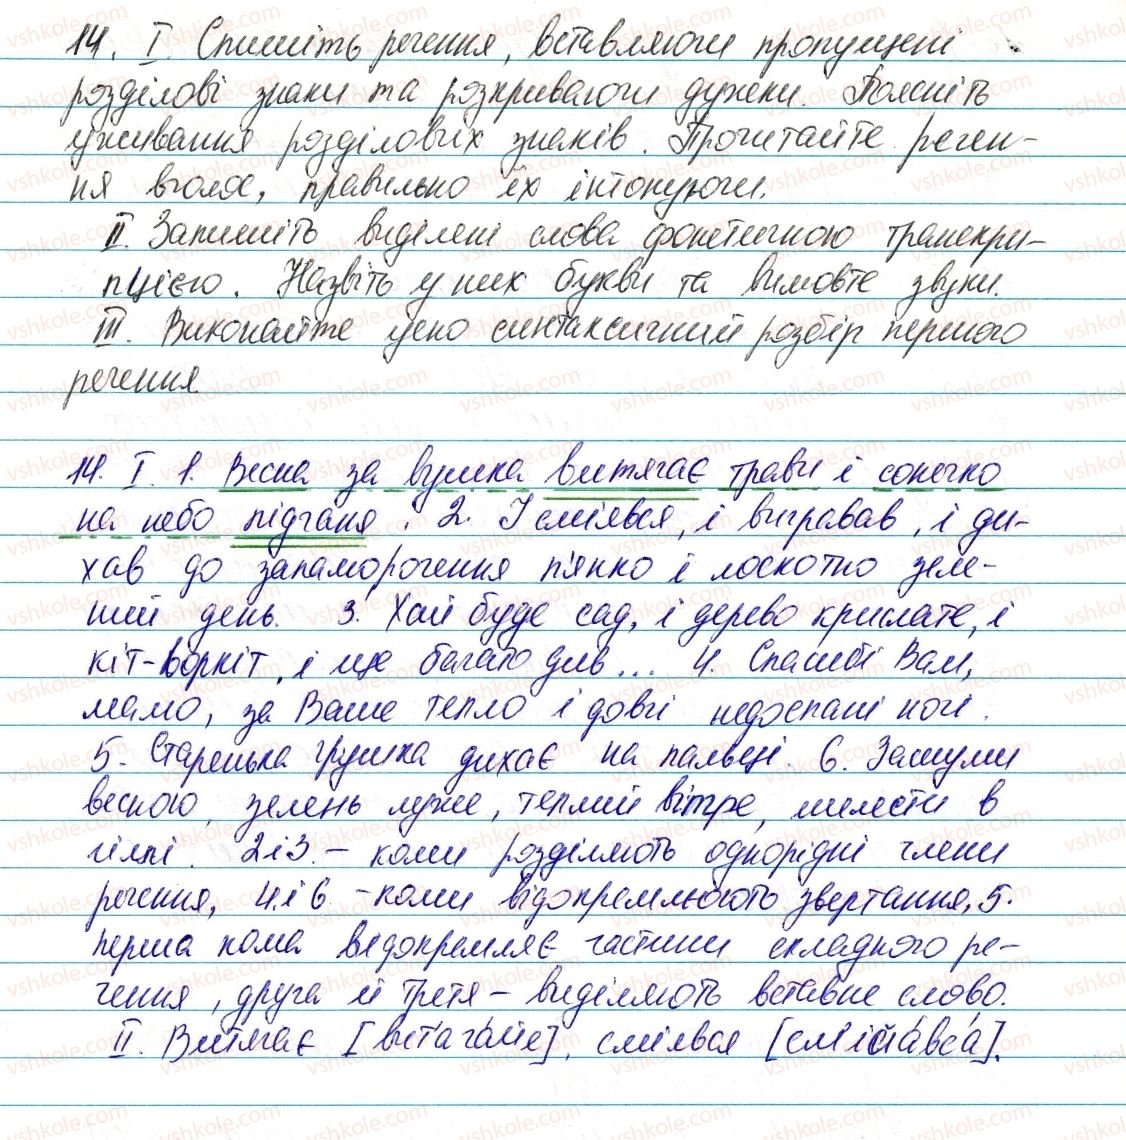 14. І. Спишіть речення, вставляючи пропущені
розділові знаки та розкриваючи дужки. Поясніть
уживання розділових знаків. Прочитайте речен-
ня вголос, правильно їх інтонуючи.
ІІ. Запишіть виділені слова фонетичною транскри-
пцією. Назвіть у них букви та вимовте звуки.
ІІІ. Виконайте усно синтаксичний розбір першого
речення.
14. І. 1. Весна за вушка витягає трави і сонечко
на небо підганя. 2. І сміявся, і вигравав, і ди-
хав до запаморочення п'янко і лоскотно зеле-
ний день. 3. Хай буде сад, і дерево крислате, і
кіт-воркіт, і ще багато див... 4. Спасибі Вам,
мамо, за Ваше тепло і довгі недоспані ночі.
5. Старенька грушка дихає на пальці. 6. Зашуми
весною, зелень луже, теплий вітре, шелести в
гіллі. 2 і 3. – коми розділяють однорідні члени
речення, 4 і 6 – коми відокремлюють звертання, 5.
перша кома відокремляє частини складного ре-
чення, друга й третя – виділяють вставне слово.
ІІ. Витягає [витагайе], сміявся [смійавса].